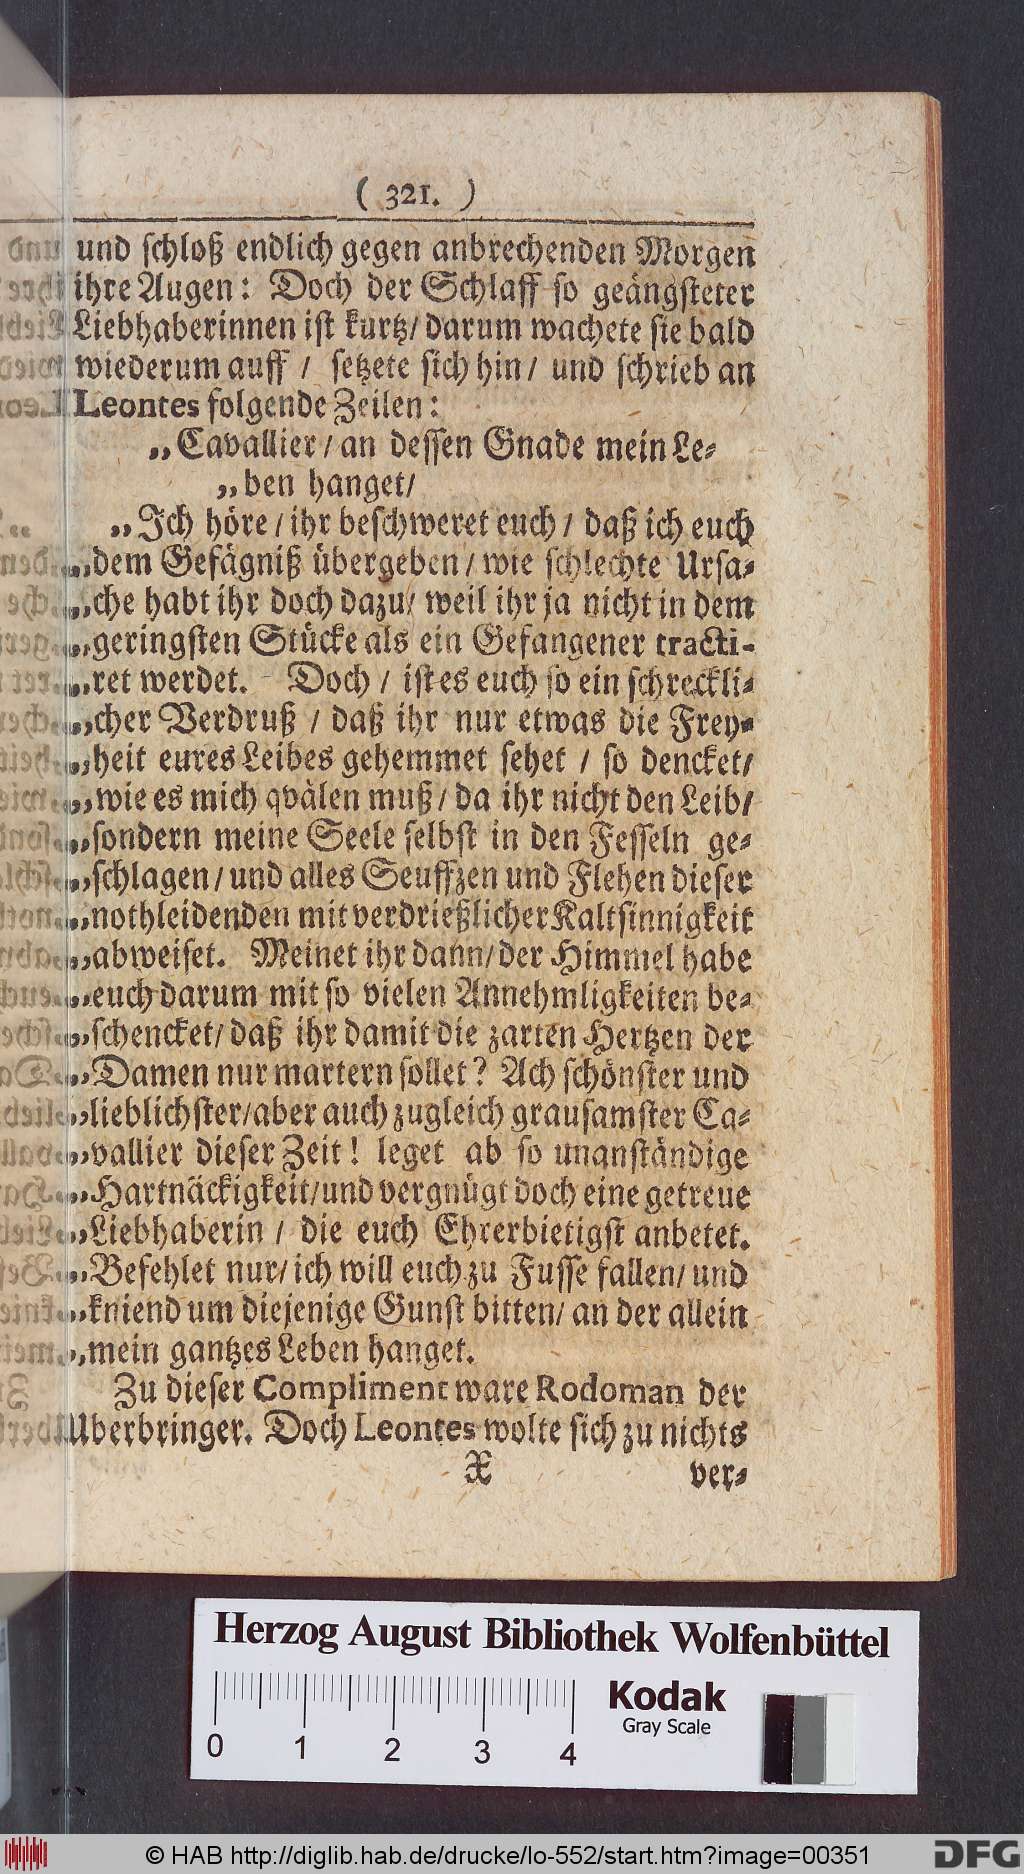 ( 321. )
und schloß endlich gegen anbrechenden Morgen
ihre Augen: Doch der Schlaff so geängsteter
Liebhaberinnen ist kurtz/ darum wachete sie bald
wiederum auff / setzete sich hin/ und schrieb an
Leontes folgende Zeilen:
„Cavallier/ an dessen Gnade mein Le-
„ben hanget/
„Ich höre / ihr beschweret euch / daß ich euch
„dem Gefägniß übergeben/ wie schlechte Ursa-
„che habt ihr doch dazu/ weil ihr ja nicht in dem
„geringsten Stücke als ein Gefangener tracti-
„ret werdet. Doch / ist es euch so ein schreckli-
„cher Verdruß / daß ihr nur etwas die Frey-
„heit eures Leibes gehemmet sehet / so dencket/
„wie es mich qvälen muß/ da ihr nicht den Leib/
„sondern meine Seele selbst in den Fesseln ge-
„schlagen/ und alles Seuffzen und Flehen dieser
„nothleidenden mit verdrießlicher Kaltsinnigkeit
„abweiset. Meinet ihr dann/ der Himmel habe
„euch darum mit so vielen Annehmligkeiten be-
„schencket/ daß ihr damit die zarten Hertzen der
„Damen nur martern sollet? Ach schönster und
„lieblichster/ aber auch zugleich grausamster Ca-
„vallier dieser Zeit! leget ab so unanständige
„Hartnäckigkeit/ und vergnügt doch eine getreue
„Liebhaberin / die euch Ehrerbietigst anbetet.
„Befehlet nur/ ich will euch zu Fusse fallen/ und
„kniend um diejenige Gunst bitten/ an der allein
„mein gantzes Leben hanget.
Zu dieser Compliment ware Rodoman der
Uberbringer. Doch Leontes wolte sich zu nichts
X ver-
Herzog August Bibliothek Wolfenbüttel
Kodak
Gray Scale
0 1 2 3 4
© HAB http://diglib.hab.de/drucke/lo-552/start.htm?image=00351
DFG